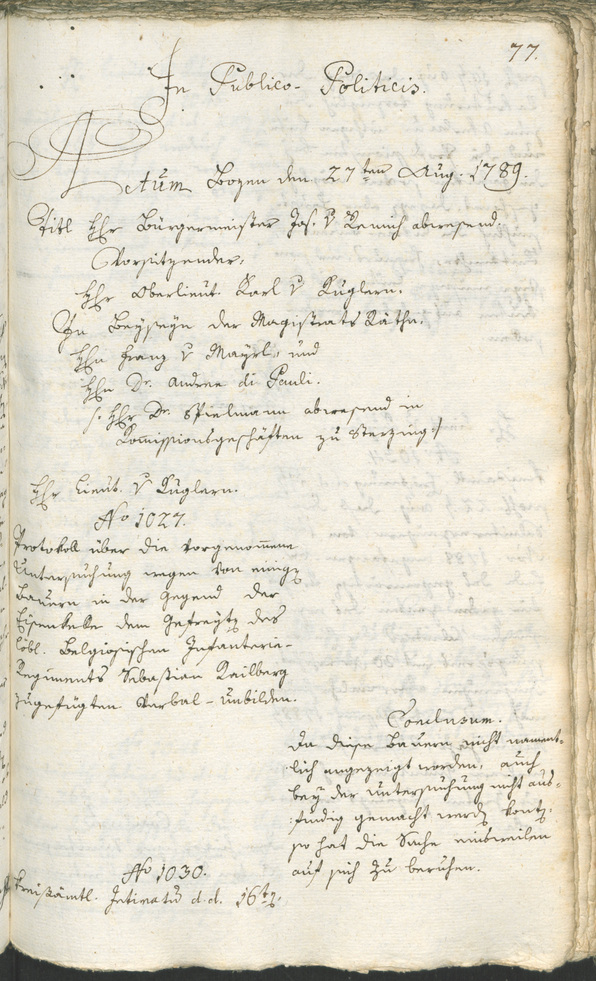 77.
In Publico-Politicis.
Actum Bozen den 27ten Aug. 1789.
Titl Hhr Bürgermeister Jos. v Remich abwesend.
Vorsitzender,
Hhr Oberlieut. Karl v Kuglern.
In Beyseyn der Magistrats Räthe.
Hhn Franz v Mayrl, und
Hhn Dr. Andree di Pauli.
/: Hhr Dr. Spielmann abwesend in
Kommissionsgeschäften zu Sterzing :/
Hhr Lieut. v Kuglern.
No 1027.
Protokoll über die vorgenommene
Untersuchung wegen von einigen
Bauern in der Gegend der
Eisenkelle dem Gefreyten des
löbl. Belgiosischen Infanterie-
Regiments Sebastian Kailberg
zugefügten Verbal-Unbilden.
Conclusum.
Da diese Bauern nicht nament-
lich angezeigt worden, auch
bey der Untersuchung nicht aus-
findig gemacht werden konten,
so hat die Sache einsweilen
auf sich zu beruhen.
No 1030.
Kreisämtl. Intimatum d.d. 16ten